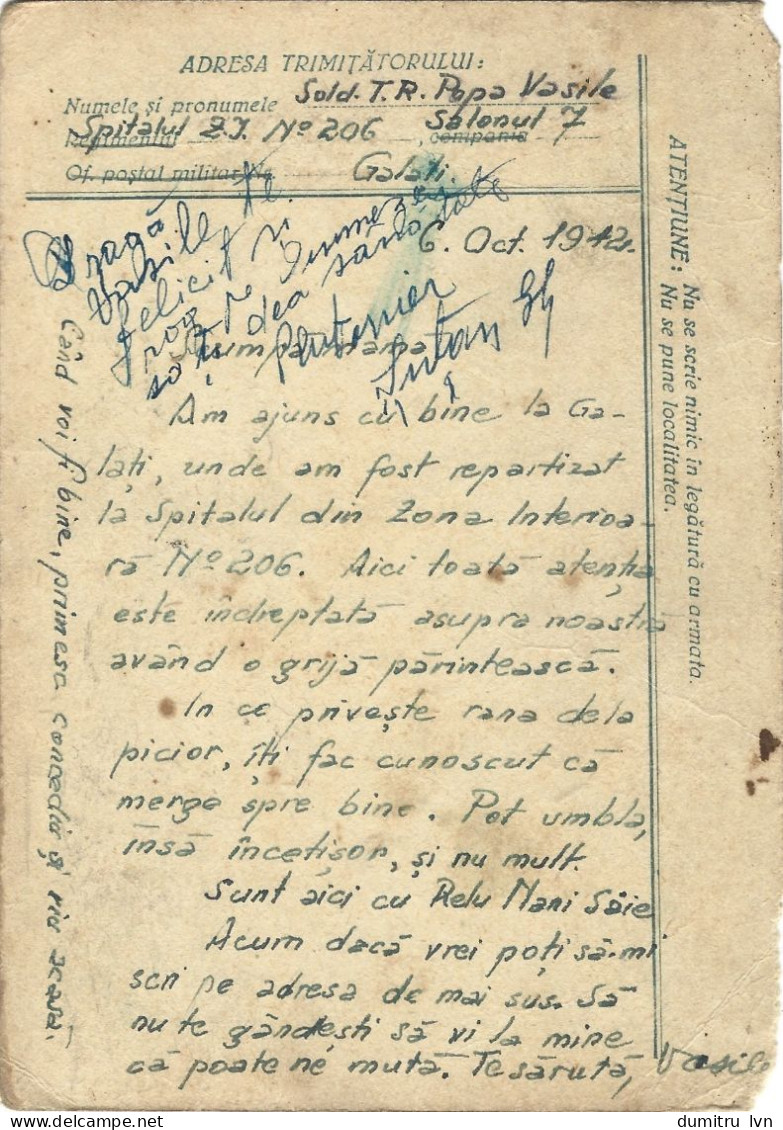 ADRESA TRIMIȚĂTORULUI:
Numele și pronumele Sold. T.R. Popa Vasile
Regimentul Spitalul Z.I. Nº 206, compania Salonul 7
Of. poștal militar Nr. Galați.
6. Oct. 1942.
Dragă
Vasile te
felicit și
rog pe Dumnezeu
să-ți dea sănătate
Plutonier
Scumpă mamă
Am ajuns cu bine la Ga-
lați, unde am fost repartizat
la Spitalul din Zona Interioa-
ră Nº 206. Aici toată atenția
este îndreptată asupra noastră
având o grijă părintească.
In ce privește rana dela
picior, îți fac cunoscut că
merge spre bine. Pot umbla,
însă încetișor, și nu mult.
Sunt aici cu Relu Nani
Acum dacă vrei poți să-mi
scri pe adresa de mai sus. Să
nu te gândești să vi la mine
că poate ne mută. Te sărută, Vasile
Când voi fi bine, primesc concediu și viu acasă.
ATENȚIUNE: Nu se scrie nimic în legătură cu armata.
Nu se pune localitatea.
dumitru lvn